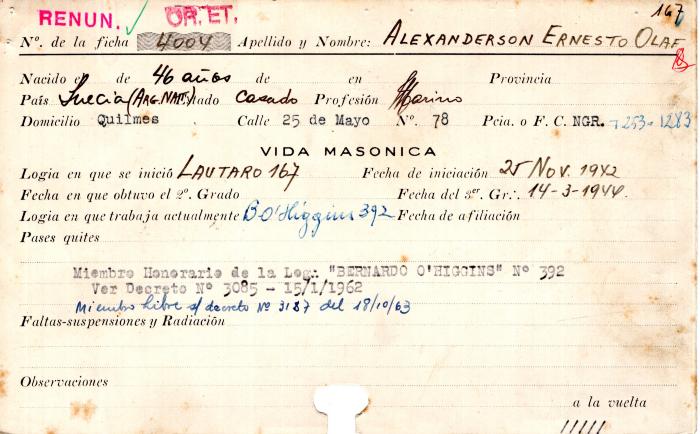 RENUN. OR. ET. 167
Nº. de la ficha 4004 Apellido y Nombre: ALEXANDERSON ERNESTO OLAF
Nacido el de 46 años de en Provincia
País Suecia (ARG. NAT.) Estado casado Profesión Marino
Domicilio Quilmes Calle 25 de Mayo Nº. 78 Pcia. o F. C. NGR. - 253-1283
VIDA MASONICA
Logia en que se inició LAUTARO 167 Fecha de iniciación 25 Nov. 1942
Fecha en que obtuvo el 2º. Grado Fecha del 3er. Gr∴ 14-3-1944.
Logia en que trabaja actualmente B O'Higgins 392 Fecha de afiliación
Pases quites
Miembro Honorario de la Log∴ "BERNARDO O'HIGGINS" Nº 392
Ver Decreto Nº 3085 - 15/1/1962
Miembro libre s/ decreto Nº 3187 del 18/10/63
Faltas-suspensiones y Radiación
Observaciones
a la vuelta
/////